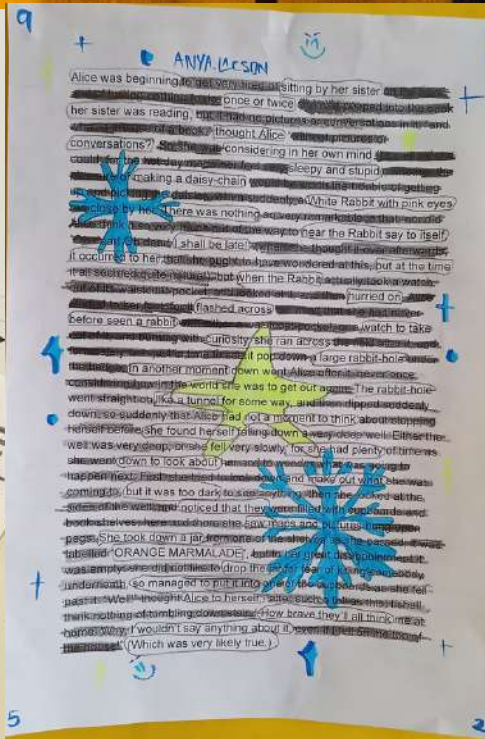 9
ANYA.LARSON
Alice was beginning to get very tired of sitting by her sister
once or twice peeped into the book
her sister was reading, but it had no pictures or conversations in it, "and
of a book," thought Alice "without pictures or
conversations?" So she was considering in her own mind
could, for the hot day made her feel very sleepy and stupid
of making a daisy-chain would be worth the trouble of getting
up and picking the daisies, when suddenly a White Rabbit with pink eyes
close by her. There was nothing so very remarkable in that; nor did
Alice think it so very much out of the way to hear the Rabbit say to itself,
I shall be late! when she thought it over afterwards,
it occurred to her that she ought to have wondered at this, but at the time
it all seemed quite natural); but when the Rabbit actually took a watch
out of its waistcoat-pocket, and looked at it, and then hurried on
flashed across
before seen a rabbit watch to take
out of it, and burning with curiosity, she ran across
pop down a large rabbit-hole under
In another moment down went Alice after it, never once
considering how in the world she was to get out again. The rabbit-hole
went straight on like a tunnel for some way, and then dipped suddenly
down, so suddenly that Alice had not a moment to think about stopping
herself before she found herself falling down a very deep well. Either the
well was very deep, or she fell very slowly, for she had plenty of time as
she went down to look about
happen next. First, she tried to look down and make out what she was
coming to, but it was too dark to see anything; then she looked at the
sides of the well, and noticed that they were filled with cupboards and
book-shelves; here and there she saw maps and pictures hung upon
pegs. She took down a jar from one of the shelves as she passed; it was
labelled "ORANGE MARMALADE", but to her great disappointment it
was empty: she did not like to drop the jar for fear of killing somebody
underneath, so managed to put it into one of the cupboards as she fell
past it. "Well!" thought Alice to herself, "after such a fall as this, I shall
think nothing of tumbling down stairs! How brave they'll all think me at
home! Why, I wouldn't say anything about it, even if I fell off the top of
the house!" (Which was very likely true.)
5
2